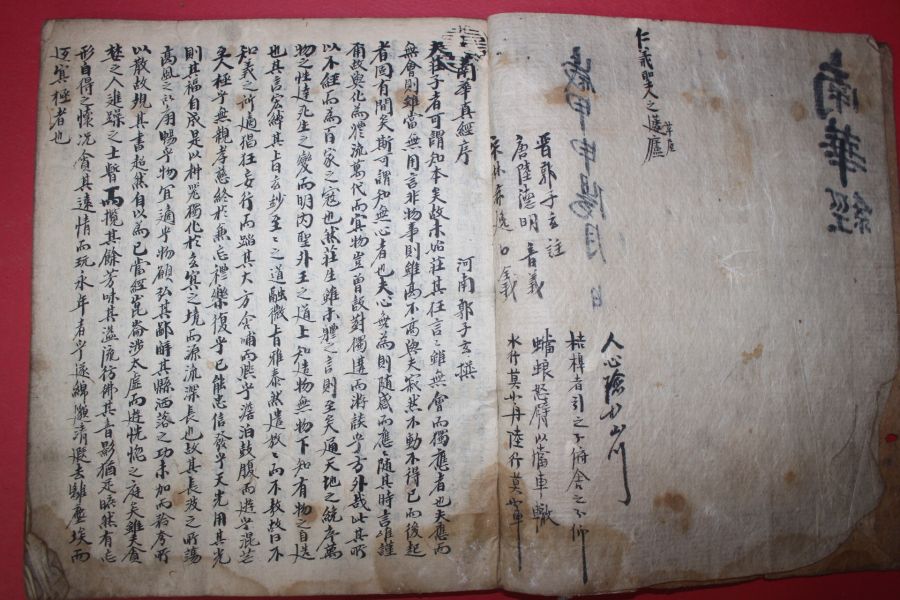 南華經
仁義聖人之蘧廬
草屋
人心險於山川
桔橰者引之下俯舍之下仰
螗蜋怒臂以當車轍
水行莫如舟陸行莫如車
歲甲申陽月日
晋郭子玄註
唐陸德明音義
宋林希逸口義
南華真經序
河南郭子玄撰
夫莊子者可謂知本矣故未始莊其狂言言雖無會而獨應者也夫應而
無會則雖當無用言非物事則雖高不高與夫寂然不動不得已而後起
者固有間矣斯可謂知無心者也夫心無為則隨感而應應隨其時言唯謹
爾故與化而體流萬代而冥物豈曾設對獨遘而游談乎方外哉此其所
以不經而為百家之冠也然莊生雖未體之言則至矣通天地之統序萬
物之性達死生之變而明內聖外王之道上知造物無物下知有物之自造
也其言宏綽其旨玄妙至至之道融微旨雅泰然遣放放而不敖故曰不
知義之所適猖狂妄行而蹈其大方含哺而熙乎澹泊鼓腹而遊乎混芒
至人極乎無親孝慈終於兼忘禮樂復乎已能忠信發乎天光用其光
則其福自成是以神器獨化於玄冥之境而源流深長也故其長波之所蕩
高風之所扇暢乎物宜適乎物願弘其鄙解其縣洒落之功未加而矜夸所
以散故規其書超然自以為已當經崑崙涉太虛而遊恍惚之庭矣雖復貪
婪之人進躁之士暫而攬其餘芳味其溢流彷彿其音影猶足曠然有忘
形自得之懷況貪其遠情而玩永年者乎遂綿邈清遐去離塵埃而
返冥極者也